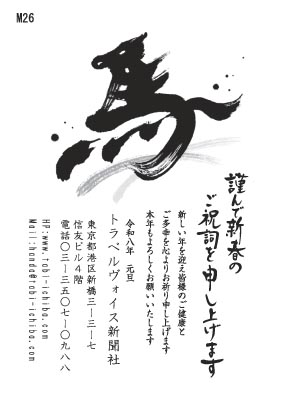 M26
馬
謹んで新春の
ご祝詞を申し上げます
新しい年を迎え皆様のご健康と
ご多幸を心よりお祈り申し上げます
本年もよろしくお願いいたします
令和八年 元旦
トラベルヴォイス新聞社
東京都港区新橋三ー三ー七
信友ビル４階
電話〇三ー三五〇七ー〇九八八
HP:www.tabi-ichiba.com
Mail:honda@tabi-ichiba.com